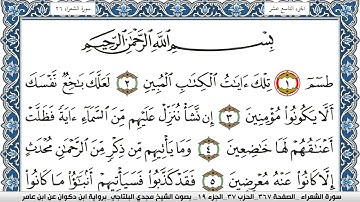 الجزء التاسع عشر
سورة الشعراء ٢٦
بِسْمِ اللَّهِ الرَّحْمَٰنِ الرَّحِيمِ
طسٓمٓ ١ تِلْكَ ءَايَٰتُ الْكِتَٰبِ الْمُبِينِ ٢ لَعَلَّكَ بَٰخِعٌ نَّفْسَكَ
أَلَّا يَكُونُوا۟ مُؤْمِنِينَ ٣ إِن نَّشَأْ نُنَزِّلْ عَلَيْهِم مِّنَ السَّمَآءِ ءَايَةً فَظَلَّتْ
أَعْنَٰقُهُمْ لَهَا خَٰضِعِينَ ٤ وَمَا يَأْتِيهِم مِّن ذِكْرٍ مِّنَ الرَّحْمَٰنِ مُحْدَثٍ
إِلَّا كَانُوا۟ عَنْهُ مُعْرِضِينَ ٥ فَقَدْ كَذَّبُوا۟ فَسَيَأْتِيهِمْ أَنۢبَٰٓؤُا۟ مَا كَانُوا۟
سورة الشعراء الصفحة ٣٦٧ الحزب ٣٧ الجزء ١٩ بصوت الشيخ مجدي البلتاجي برواية ابن ذكوان عن ابن عامر